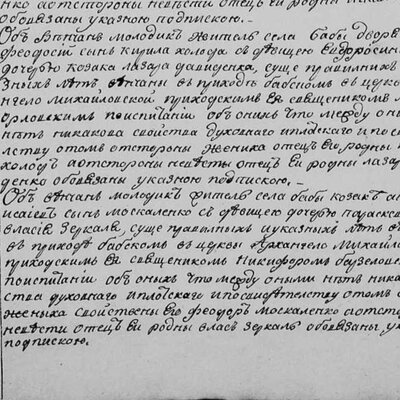 нко аотстороны невѣсти отецъ Еи родны
обовязаны указною подпискою. –
Объ Вѣнчанъ молодикъ житель села бабы дворя
Феодостй сынъ кирила холода съ дѣвицею Евдоксиею
дочерью козака лазара давиденка, суще правилнихъ
зныхъ лѣтъ вѣнчаны въ приходѣ бабскомъ въ церк
нгело михайловской приходскимъ Ея священикомъ
орловскимъ поиспитаніи объ онихъ что между он
нѣтъ никакова свойства духовнаго иплотскаго ипосв
лству отомъ отстороны жениха отецъ Его родны
холодъ аотстороны невѣсты отецъ Еи родны лаза
денко обовязаны указною подпискою. –
Объ вѣнчанъ молодикъ житель села бабы козакъ
исаіевъ сынъ москаленко съ дѣвицею дочерью параске
власия Зеркаля, суще правилныхъ иуказныхъ лѣтъ в
въ приходѣ бабскомъ въ церкви архангело михайло
приходскимъ Ея священикомъ никифоромъ
поиспитаніи объ оныхъ что между оными нѣтъ ника
ства духовнаго иплотскаго ипосвидетелству отомъ о
жениха свойствены Его феодоръ москаленко аотст
невѣсти отецъ Еи родны власъ Зеркаль обовязаны ук
подпискою.